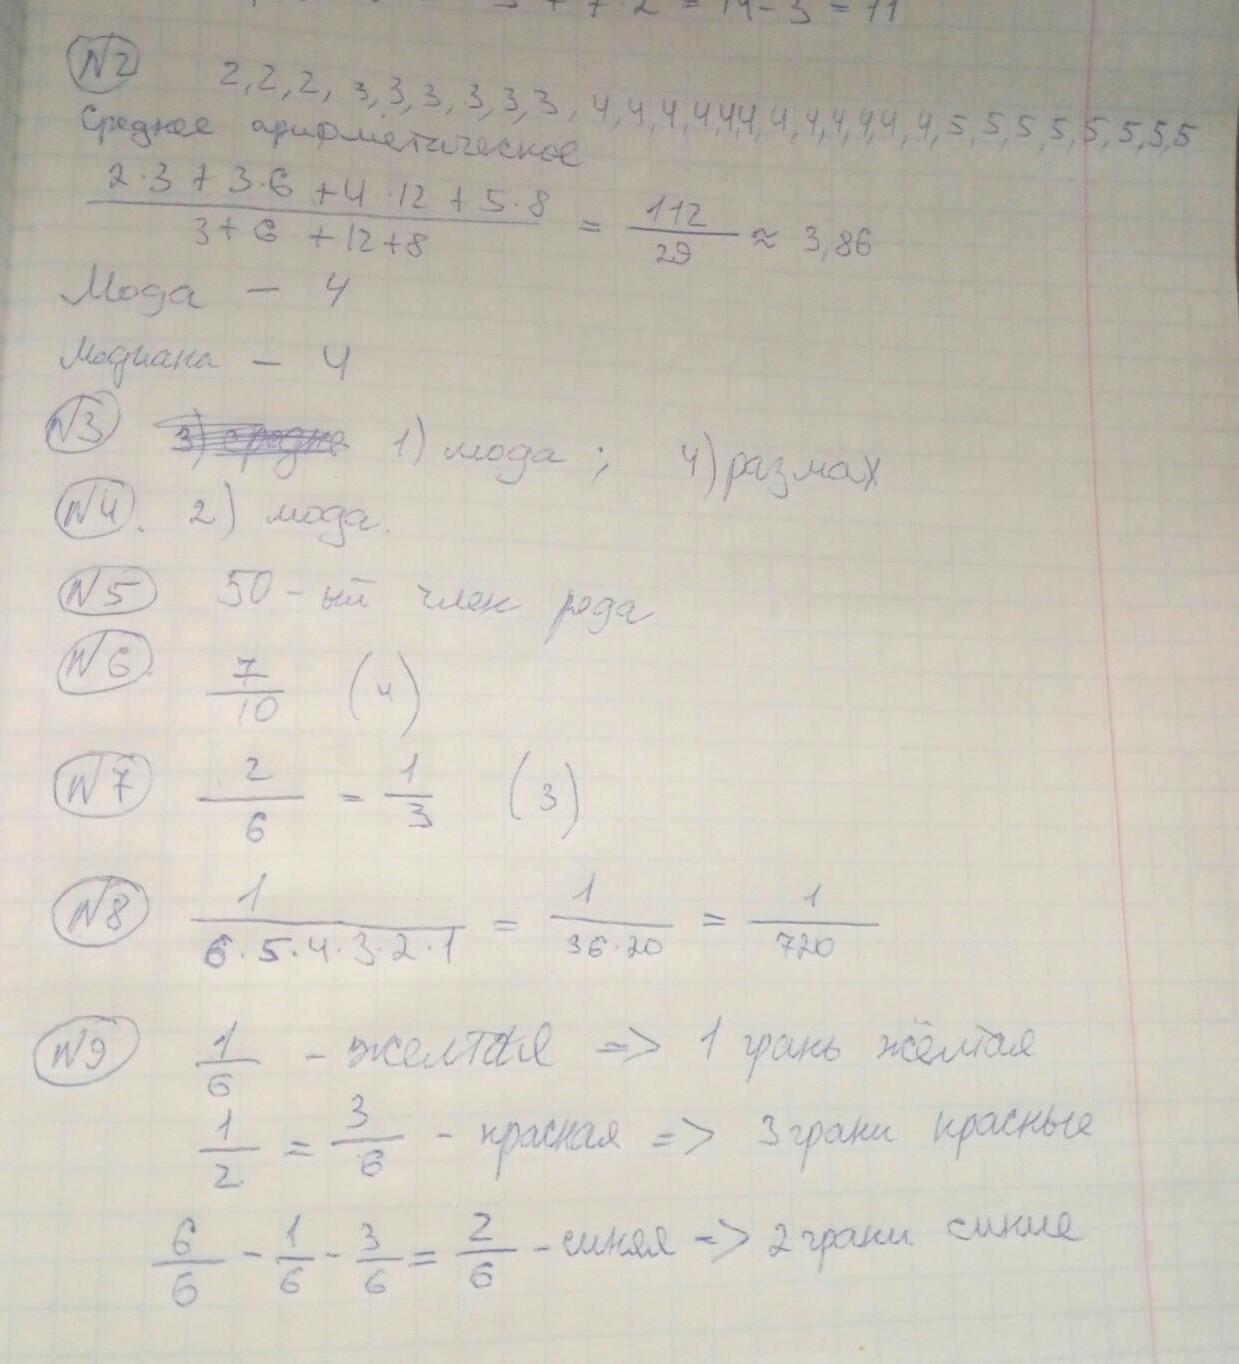 3 + 7 · 2 = 14 - 3 = 11
№2 2,2,2, 3,3,3,3,3,3, 4,4,4,4,4,4,4,4,4,4,4,4,5,5,5,5,5,5,5,5
Среднее арифметическое
2·3 + 3·6 + 4·12 + 5·8 / 3+6+12+8 = 112/29 ≈ 3,86
Мода – 4
Медиана – 4
№3 1) мода ; 4) размах
№4. 2) мода.
№5 50-ый член ряда
№6. 7/10 (4)
№7 2/6 = 1/3 (3)
№8 1/6·5·4·3·2·1 = 1/36·20 = 1/720
№9 1/6 - желтая => 1 грань жёлтая
1/2 = 3/6 - красная => 3 грани красные
6/6 - 1/6 - 3/6 = 2/6 - синяя => 2 грани синие